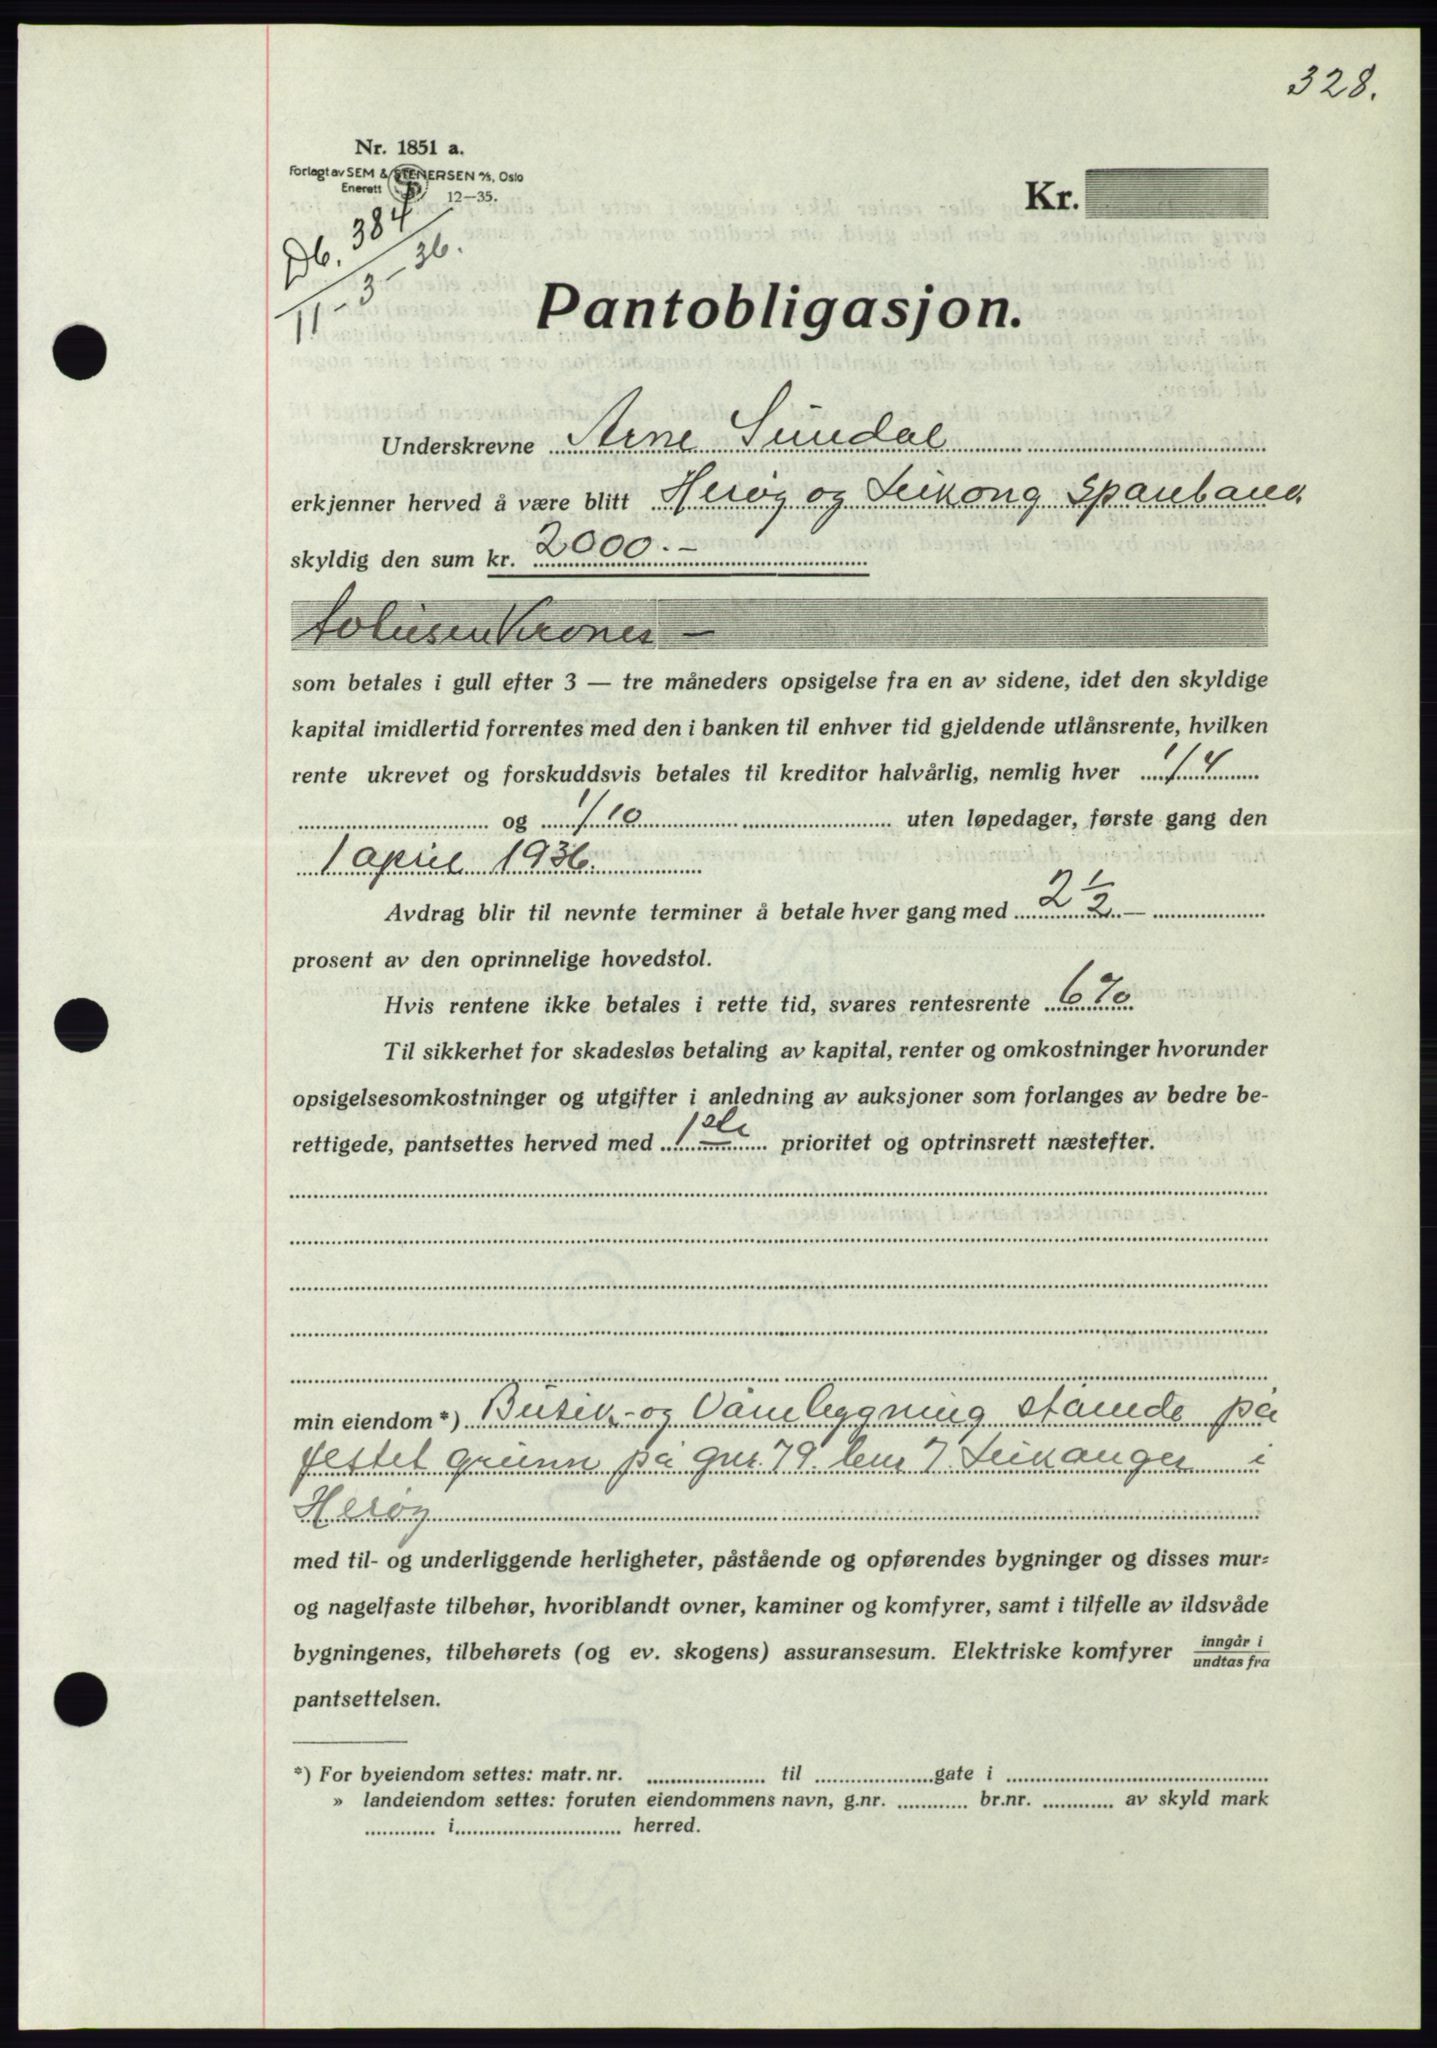 328.
Nr. 1851 a.
Forlagt av SEM & STENERSEN A/S, Oslo
Enerett
12—35.
Kr.
Db. 384
11-3-36.
Pantobligasjon.
Underskrevne Arne Sundal
erkjenner herved å være blitt Herøy og Leikong Sparebank
skyldig den sum kr. 2000.-
totusen Kroner —
som betales i gull efter 3 — tre måneders opsigelse fra en av sidene, idet den skyldige
kapital imidlertid forrentes med den i banken til enhver tid gjeldende utlånsrente, hvilken
rente ukrevet og forskuddsvis betales til kreditor halvårlig, nemlig hver 1/4
og 1/10 uten løpedager, første gang den
1 april 1936.
Avdrag blir til nevnte terminer å betale hver gang med 2 1/2 —
prosent av den oprinnelige hovedstol.
Hvis rentene ikke betales i rette tid, svares rentesrente 6%
Til sikkerhet for skadesløs betaling av kapital, renter og omkostninger hvorunder
opsigelsesomkostninger og utgifter i anledning av auksjoner som forlanges av bedre be-
rettigede, pantsettes herved med 1ste prioritet og optrinsrett næstefter.
min eiendom*) Butik- og Vånebygning ståande på
festet grunn på gnr. 79. bnr 7 Leikanger i
Herøy
med til- og underliggende herligheter, påstående og opførendes bygninger og disses mur-
og nagelfaste tilbehør, hvoriblandt ovner, kaminer og komfyrer, samt i tilfelle av ildsvåde
bygningenes, tilbehørets (og ev. skogens) assuransesum. Elektriske komfyrer inngår i / undtas fra
pantsettelsen.
*) For byeiendom settes: matr. nr. til gate i
» landeiendom settes: foruten eiendommens navn, g.nr. br.nr. av skyld mark
i herred.